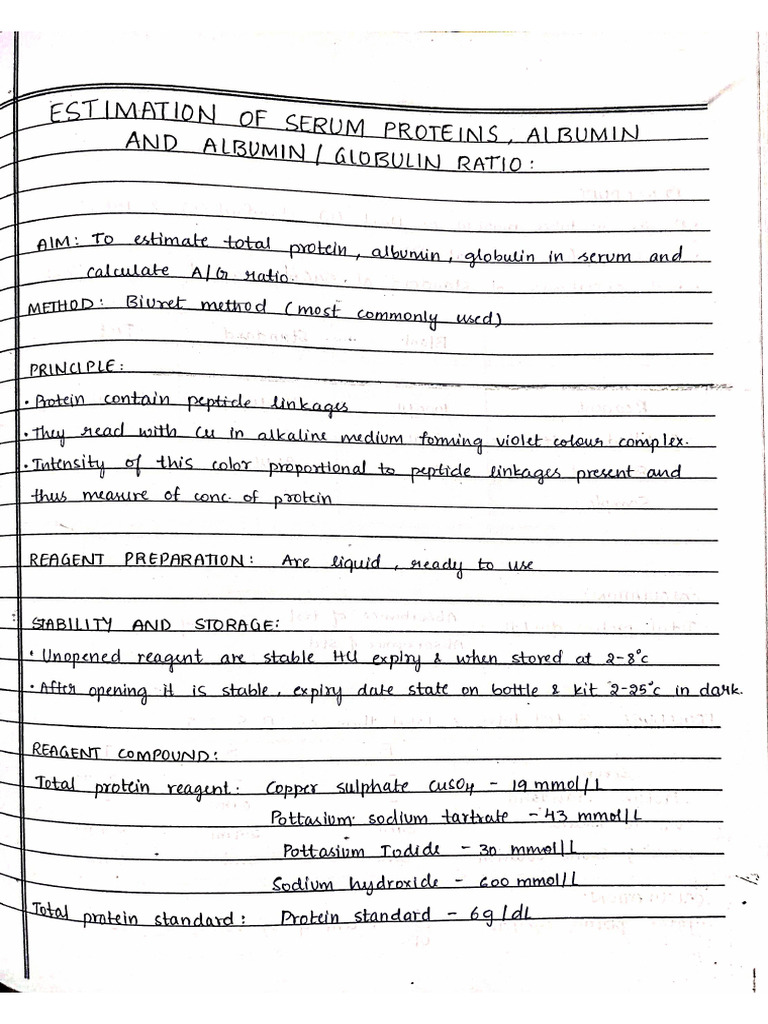 ESTIMATION OF SERUM PROTEINS, ALBUMIN
AND ALBUMIN / GLOBULIN RATIO:
AIM: To estimate total protein, albumin, globulin in serum and
calculate A/G ratio.
METHOD: Biuret method (most commonly used)
PRINCIPLE:
• Protein contain peptide linkages
• They read with Cu in alkaline medium forming violet colour complex.
• Intensity of this color proportional to peptide linkages present and
thus measure of conc. of protein
REAGENT PREPARATION: Are liquid, ready to use
STABILITY AND STORAGE:
• Unopened reagent are stable till expiry & when stored at 2-8°c
• After opening it is stable, expiry date state on bottle & kit 2-25°c in dark.
REAGENT COMPOUND:
Total protein reagent: Copper sulphate CuSO4 - 19 mmol/L
Pottasium sodium tartrate - 43 mmol/L
Pottasium Iodide - 30 mmol/L
Sodium hydroxide - 600 mmol/L
Total protein standard: Protein standard - 6g/dL